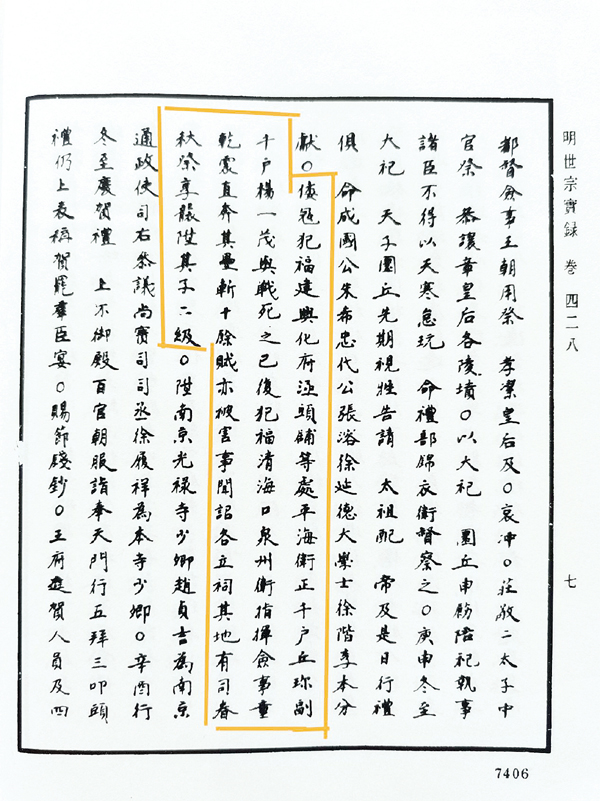 明世宗實錄 卷 四二八 七
都督僉事王朝用祭 孝潔皇后及○哀冲○莊敬二太子中
官祭 恭讓章皇后各陵墳○以大祀 圜丘申飭陪祀執事
諸臣不得以天寒怠玩 命禮部錦衣衛督察之○庚申冬至
大祀 天子圜丘先期視牲告請 太祖配 帝及是日行禮
俱 命成國公朱希忠代公張溶徐延德大學士徐階李本分
獻○倭寇犯福建興化府涵頭舖等處平海衛正千戶丘珎副
千戶楊一茂與戰死之已復犯福清海口泉州衛指揮僉事童
乾震直奔其壘斬十餘賊亦被害事聞詔各立祠其地有司春
秋祭享襲陞其子二級○陞南京光祿寺少卿趙貞吉為南京
通政使司右叅議尚寶司司丞徐履祥為本寺少卿○辛酉行
冬至慶賀禮 上不御殿百官朝服詣奉天門行五拜三叩頭
禮仍上表稱賀罷羣臣宴○賜節錢鈔○王府進賀人員及四
7406